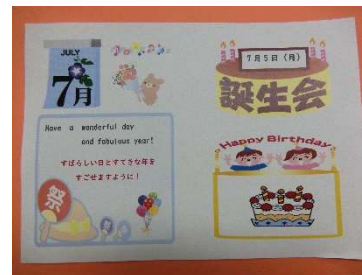 JULY
7月
Have a wonderful day
and fabulous year!
すばらしい日とすてきな年を
すごせますように！
祭
7月5日(月)
誕生会
Happy Birthday